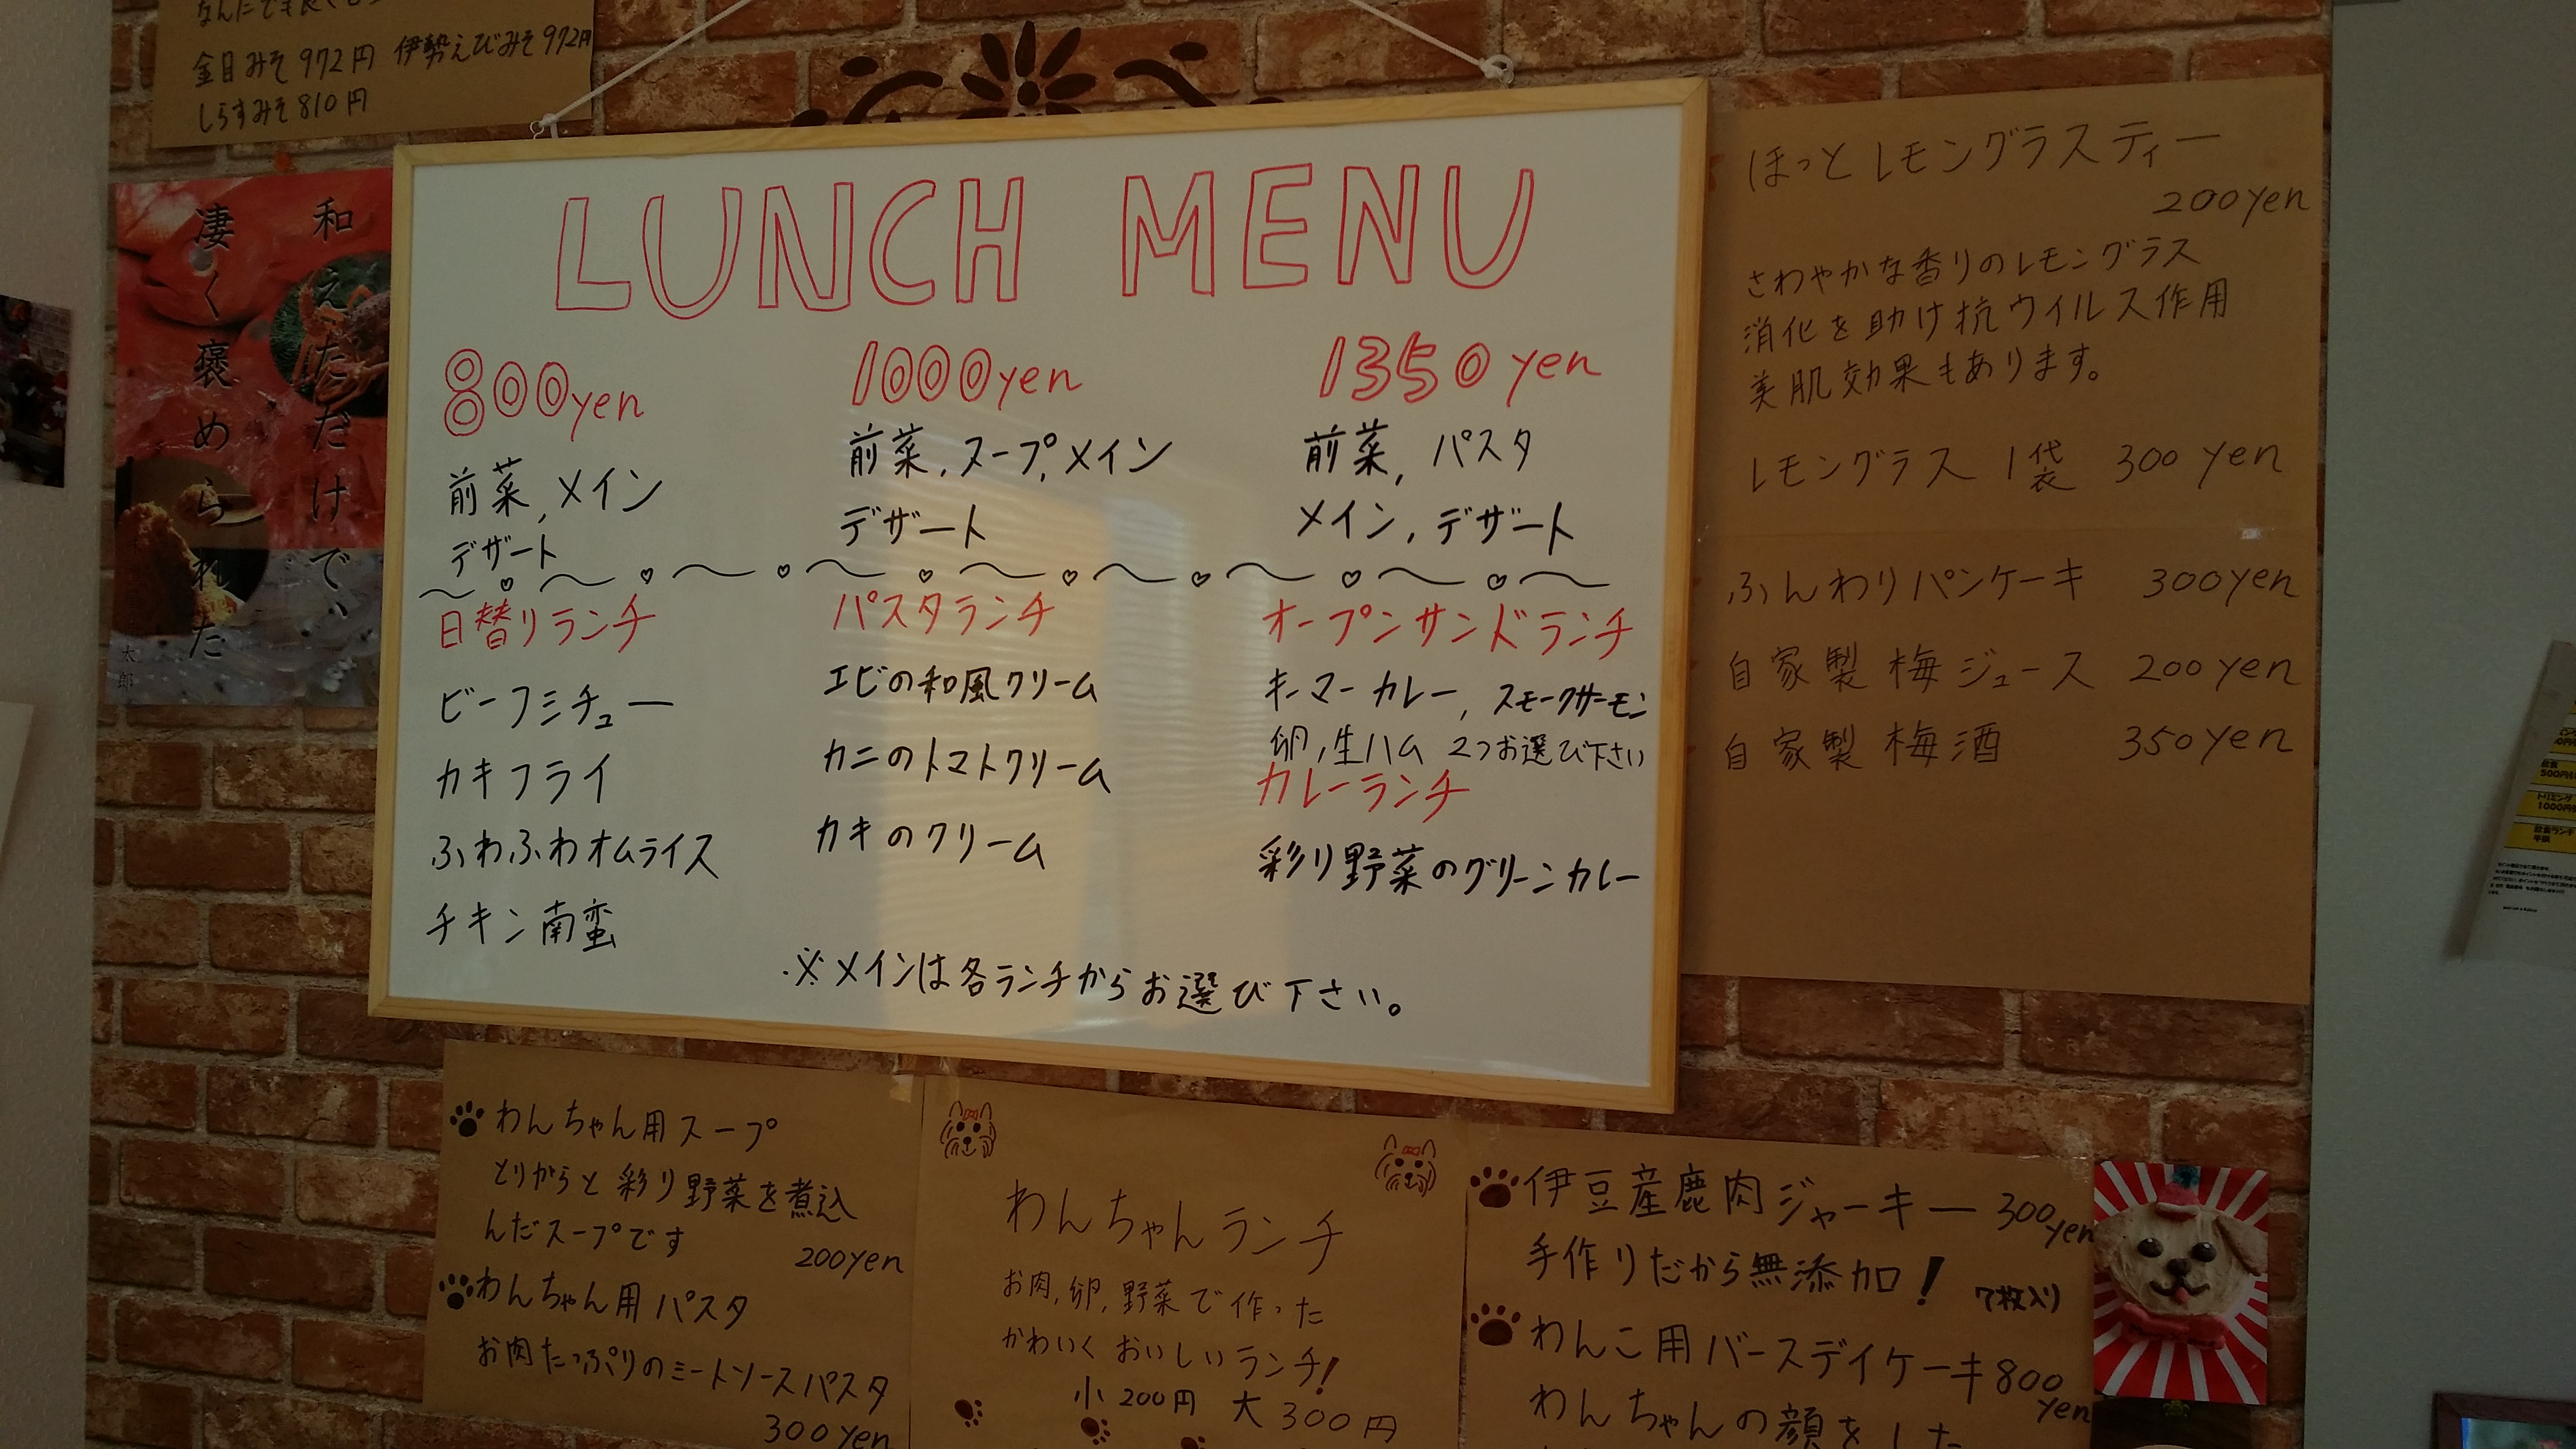 金目みそ 972円 伊勢えびみそ 972円
しらすみそ 810円
和えただけで、
凄く褒められた
太郎
LUNCH MENU
800yen
前菜, メイン
デザート
1000yen
前菜, スープ, メイン
デザート
1350yen
前菜, パスタ
メイン, デザート
日替りランチ
ビーフシチュー
カキフライ
ふわふわオムライス
チキン南蛮
パスタランチ
エビの和風クリーム
カニのトマトクリーム
カキのクリーム
オープンサンドランチ
キーマーカレー, スモークサーモン
卵, 生ハム 2つお選び下さい
カレーランチ
彩り野菜のグリーンカレー
※メインは各ランチからお選び下さい。
ほっとレモングラスティー
200yen
さわやかな香りのレモングラス
消化を助け抗ウイルス作用
美肌効果もあります。
レモングラス 1袋 300yen
ふんわりパンケーキ 300yen
自家製梅ジュース 200yen
自家製梅酒 350yen
わんちゃん用スープ
とりがらと彩り野菜を煮込
んだスープです
200yen
わんちゃん用パスタ
お肉たっぷりのミートソースパスタ
300yen
わんちゃんランチ
お肉, 卵, 野菜で作った
かわいくおいしいランチ!
小 200円 大 300円
伊豆産鹿肉ジャーキー 300yen
手作りだから無添加! 7枚入り
わんこ用バースデイケーキ 800yen
わんちゃんの顔をした